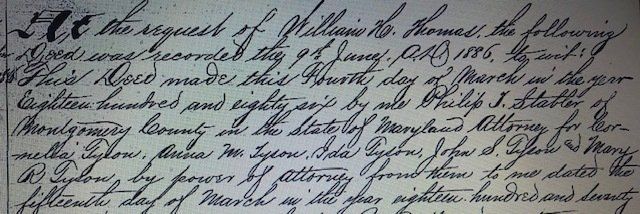 At the request of William H. Thomas, the following
Deed was recorded the 9th June, A.D. 1886, to wit:
This Deed made this Fourth day of March in the year
Eighteen hundred and eighty six by me Philip T. Stabler of
Montgomery County in the State of Maryland Attorney for Cor-
nelia Tyson, Anna M. Tyson, Ida Tyson, John S. Tyson and Mary
R. Tyson, by power of attorney from them to me dated the
fifteenth day of March in the year eighteen hundred and seventy